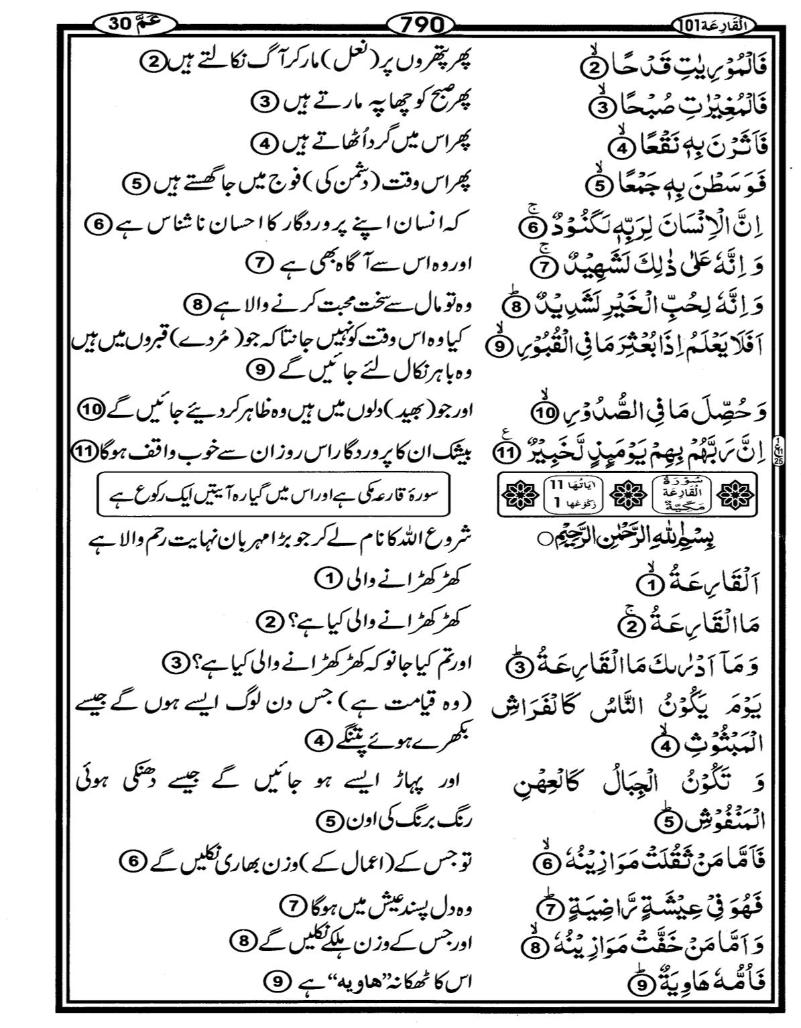 القارعة 101 790 عمّ 30
فَالْمُوْرِيٰتِ قَدْحًا ② پھر پتھروں پر (نعل) مار کر آگ نکالتے ہیں ②
فَالْمُغِيْرٰتِ صُبْحًا ③ پھر صبح کو چھاپہ مارتے ہیں ③
فَاَثَرْنَ بِهٖ نَقْعًا ④ پھر اس میں گرد اُٹھاتے ہیں ④
فَوَسَطْنَ بِهٖ جَمْعًا ⑤ پھر اس وقت (دشمن کی) فوج میں جا گھستے ہیں ⑤
اِنَّ الْاِنْسَانَ لِرَبِّهٖ لَكَنُوْدٌ ⑥ کہ انسان اپنے پروردگار کا احسان ناشناس ہے ⑥
وَ اِنَّهٗ عَلٰى ذٰلِكَ لَشَهِيْدٌ ⑦ اور وہ اس سے آگاہ بھی ہے ⑦
وَ اِنَّهٗ لِحُبِّ الْخَيْرِ لَشَدِيْدٌ ⑧ وہ تو مال سے سخت محبت کرنے والا ہے ⑧
اَفَلَا يَعْلَمُ اِذَا بُعْثِرَ مَا فِي الْقُبُوْرِ ⑨ کیا وہ اس وقت کو نہیں جانتا کہ جو (مُردے) قبروں میں ہیں
وہ باہر نکال لئے جائیں گے ⑨
وَ حُصِّلَ مَا فِي الصُّدُوْرِ ⑩ اور جو (بھید) دلوں میں ہیں وہ ظاہر کر دیئے جائیں گے ⑩
اِنَّ رَبَّهُمْ بِهِمْ يَوْمَىِٕذٍ لَّخَبِيْرٌ ⑪ بیشک ان کا پروردگار اس روز ان سے خوب واقف ہوگا ⑪
سُوْرَةُ الْقَارِعَةِ مَكِّيَّةٌ اٰيَاتُهَا 11 رُكُوْعُهَا 1 سورۂ قارعہ مکی ہے اور اس میں گیارہ آیتیں ایک رکوع ہے
بِسْمِ اللّٰهِ الرَّحْمٰنِ الرَّحِيْمِ ○ شروع اللہ کا نام لے کر جو بڑا مہربان نہایت رحم والا ہے
اَلْقَارِعَةُ ① کھڑ کھڑانے والی ①
مَا الْقَارِعَةُ ② کھڑ کھڑانے والی کیا ہے؟ ②
وَ مَاۤ اَدْرٰىكَ مَا الْقَارِعَةُ ③ اور تم کیا جانو کہ کھڑ کھڑانے والی کیا ہے؟ ③
يَوْمَ يَكُوْنُ النَّاسُ كَالْفَرَاشِ (وہ قیامت ہے) جس دن لوگ ایسے ہوں گے جیسے
الْمَبْثُوْثِ ④ بکھرے ہوئے پتنگے ④
وَ تَكُوْنُ الْجِبَالُ كَالْعِهْنِ اور پہاڑ ایسے ہو جائیں گے جیسے دھنکی ہوئی
الْمَنْفُوْشِ ⑤ رنگ برنگ کی اون ⑤
فَاَمَّا مَنْ ثَقُلَتْ مَوَازِيْنُهٗ ⑥ تو جس کے (اعمال کے) وزن بھاری نکلیں گے ⑥
فَهُوَ فِيْ عِيْشَةٍ رَّاضِيَةٍ ⑦ وہ دل پسند عیش میں ہوگا ⑦
وَ اَمَّا مَنْ خَفَّتْ مَوَازِيْنُهٗ ⑧ اور جس کے وزن ہلکے نکلیں گے ⑧
فَاُمُّهٗ هَاوِيَةٌ ⑨ اس کا ٹھکانہ “ھاویہ” ہے ⑨